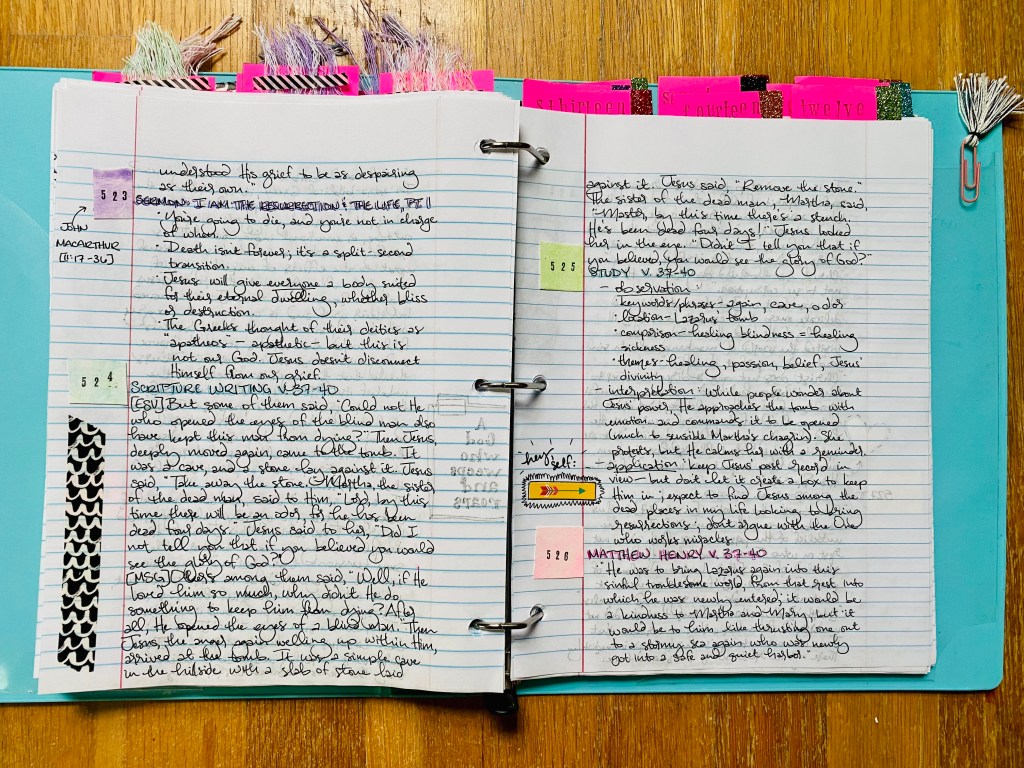 sthirteen
st
fourteen
twelve
understood His grief to be as despairing
as their own."
523
SERMON: I AM THE RESURRECTION & THE LIFE, PT 1
JOHN
MACARTHUR
[11:17-36]
· You're going to die, and you're not in charge
of when.
· Death isn't forever; it's a split-second
transition.
· Jesus will give everyone a body suited
for their eternal dwelling, whether bliss
or destruction.
· The Greeks thought of their deities as
"apatheos" – apathetic – but this is
not our God. Jesus doesn't disconnect
Himself from our grief.
524
SCRIPTURE WRITING V. 37-40
[ESV] But some of them said, "Could not He
who opened the eyes of the blind man also
have kept this man from dying?" Then Jesus,
deeply moved again, came to the tomb. It
was a cave, and a stone lay against it. Jesus
said, "Take away the stone." Martha, the sister
of the dead man, said to Him, "Lord, by this
time there will be an odor, for he has been
dead four days." Jesus said to her, "Did I
not tell you that if you believed you would
see the glory of God?"
[MSG] Others among them said, "Well, if He
loved him so much, why didn't He do
something to keep him from dying? After
all, He opened the eyes of a blind man." Then
Jesus, the anger again welling up within Him,
arrived at the tomb. It was a simple cave
in the hillside with a slab of stone laid
A
God
who
weeps
and
roars
against it. Jesus said, "Remove the stone."
The sister of the dead man, Martha, said,
"Master, by this time there's a stench.
He's been dead four days!" Jesus looked
her in the eye. "Didn't I tell you that if
you believed, you would see the glory of God?"
525
STUDY V. 37-40
– observation:
· keywords/phrases – again, cave, odor
· location – Lazarus' tomb
· comparison – healing blindness = healing
sickness
· themes – healing, passion, belief, Jesus'
divinity
– interpretation: While people wonder about
Jesus' power, He approaches the tomb with
emotion and commands it to be opened
(much to sensible Martha's chagrin). She
protests, but He calms her with a reminder.
hey
self:
– application: keep Jesus' past record in
view – but don't let it create a box to keep
Him in; expect to find Jesus among the
dead places in my life looking to bring
resurrections; don't argue with the One
who works miracles.
526
MATTHEW HENRY V. 37-40
· "He was to bring Lazarus again into this
sinful troublesome world, from that rest into
which he was newly entered; it would be
a kindness to Martha and Mary, but it
would be to him, like thrusting one out
to a stormy sea again who was newly
got into a safe and quiet harbor."